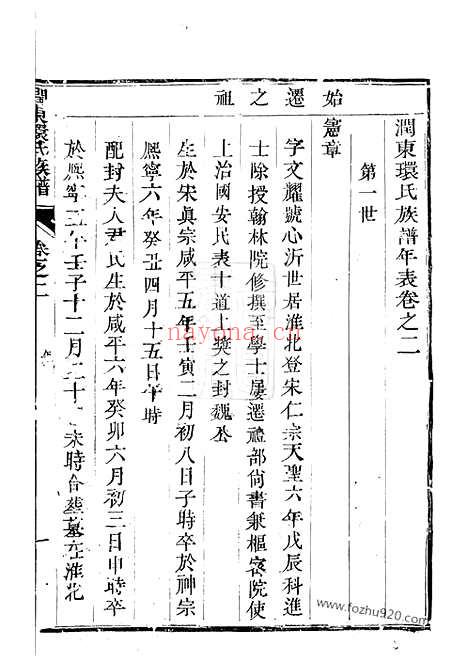 潤東環氏族譜年表卷之二
第一世
始遷之祖
憲章
字文耀號心沂世居淮北登宋仁宗天聖六年戊辰科進
士除授翰林院修撰至學士屢遷禮部尚書兼樞密院使
上治國安民表十道上奬之封魏公
生於宋眞宗咸平五年壬寅二月初八日子時卒於神宗
熈寧六年癸丑四月十五日午時
配封夫人尹氏生於咸平六年癸卯六月初三日申時卒
於熈寧五年壬子十二月二十 未時合葬墓在淮北
潤東環氏族譜
卷之二
nayona.cn
www.fozhu920.com